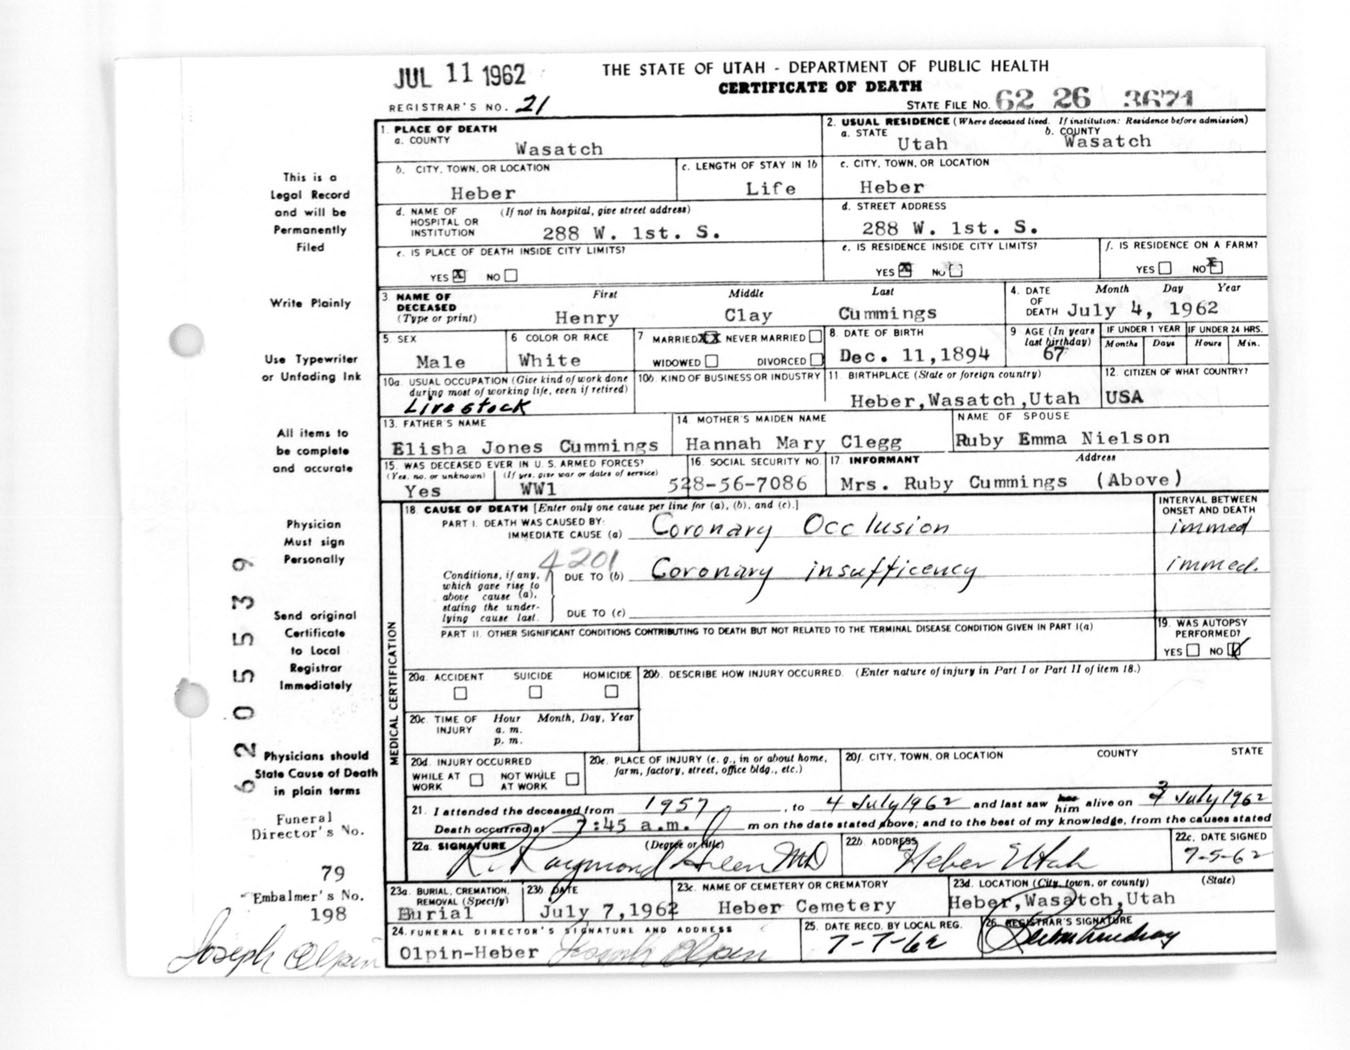 JUL 11 1962
THE STATE OF UTAH - DEPARTMENT OF PUBLIC HEALTH
CERTIFICATE OF DEATH
REGISTRAR'S NO. 21
STATE FILE NO. 62 26 3671
1. PLACE OF DEATH
a. COUNTY Wasatch
2. USUAL RESIDENCE (Where deceased lived. If institution: Residence before admission)
a. STATE Utah b. COUNTY Wasatch
b. CITY, TOWN, OR LOCATION Heber
c. LENGTH OF STAY IN 1b Life
c. CITY, TOWN, OR LOCATION Heber
d. NAME OF HOSPITAL OR INSTITUTION (If not in hospital, give street address) 288 W. 1st. S.
d. STREET ADDRESS 288 W. 1st. S.
e. IS PLACE OF DEATH INSIDE CITY LIMITS?
YES X NO
e. IS RESIDENCE INSIDE CITY LIMITS?
YES X NO
f. IS RESIDENCE ON A FARM?
YES NO X
3. NAME OF DECEASED (Type or print)
First Middle Last
Henry Clay Cummings
4. DATE OF DEATH Month Day Year
July 4, 1962
5 SEX Male
6 COLOR OR RACE White
7 MARRIED XX NEVER MARRIED
WIDOWED DIVORCED
8. DATE OF BIRTH Dec. 11,1894
9 AGE (In years last birthday) 67
IF UNDER 1 YEAR Months Days
IF UNDER 24 HRS. Hours Min.
10a. USUAL OCCUPATION (Give kind of work done during most of working life, even if retired)
Livestock
10b. KIND OF BUSINESS OR INDUSTRY
11 BIRTHPLACE (State or foreign country)
Heber,Wasatch,Utah
12. CITIZEN OF WHAT COUNTRY?
USA
13. FATHER'S NAME
Elisha Jones Cummings
14 MOTHER'S MAIDEN NAME
Hannah Mary Clegg
NAME OF SPOUSE
Ruby Emma Nielson
15. WAS DECEASED EVER IN U.S. ARMED FORCES?
(Yes, no, or unknown) (If yes, give war or dates of service)
Yes WW1
16 SOCIAL SECURITY NO.
528-56-7086
17 INFORMANT Address
Mrs. Ruby Cummings (Above)
MEDICAL CERTIFICATION
18. CAUSE OF DEATH [Enter only one cause per line for (a), (b), and (c).]
INTERVAL BETWEEN ONSET AND DEATH
PART I. DEATH WAS CAUSED BY:
IMMEDIATE CAUSE (a) Coronary Occlusion immed
4201
Conditions, if any, which gave rise to above cause (a), stating the underlying cause last.
DUE TO (b) Coronary insufficency immed.
DUE TO (c)
PART II. OTHER SIGNIFICANT CONDITIONS CONTRIBUTING TO DEATH BUT NOT RELATED TO THE TERMINAL DISEASE CONDITION GIVEN IN PART I(a)
19. WAS AUTOPSY PERFORMED?
YES NO
20a. ACCIDENT SUICIDE HOMICIDE
20b. DESCRIBE HOW INJURY OCCURRED. (Enter nature of injury in Part I or Part II of item 18.)
20c. TIME OF INJURY Hour Month, Day, Year
a. m.
p. m.
20d. INJURY OCCURRED
WHILE AT WORK NOT WHILE AT WORK
20e. PLACE OF INJURY (e. g., in or about home, farm, factory, street, office bldg., etc.)
20f. CITY, TOWN, OR LOCATION COUNTY STATE
21. I attended the deceased from 1957, to 4 July 1962 and last saw him alive on 3 July 1962
Death occurred at 7:45 a.m. m on the date stated above; and to the best of my knowledge, from the causes stated
22a. SIGNATURE (Degree or title)
R. Raymond Green MD
22b. ADDRESS
Heber Utah
22c. DATE SIGNED
7-5-62
23a. BURIAL, CREMATION, REMOVAL (Specify)
Burial
23b. DATE
July 7,1962
23c. NAME OF CEMETERY OR CREMATORY
Heber Cemetery
23d. LOCATION (City, town, or county) (State)
Heber,Wasatch,Utah
24. FUNERAL DIRECTOR'S SIGNATURE AND ADDRESS
Olpin-Heber Joseph Olpin
25. DATE RECD. BY LOCAL REG.
7-7-62
26. REGISTRAR'S SIGNATURE
This is a
Legal Record
and will be
Permanently
Filed
Write Plainly
Use Typewriter
or Unfading Ink
All items to
be complete
and accurate
Physician
Must sign
Personally
Send original
Certificate
to Local
Registrar
Immediately
Physicians should
State Cause of Death
in plain terms
6205539
Funeral
Director's No.
79
Embalmer's No.
198
Joseph Olpin